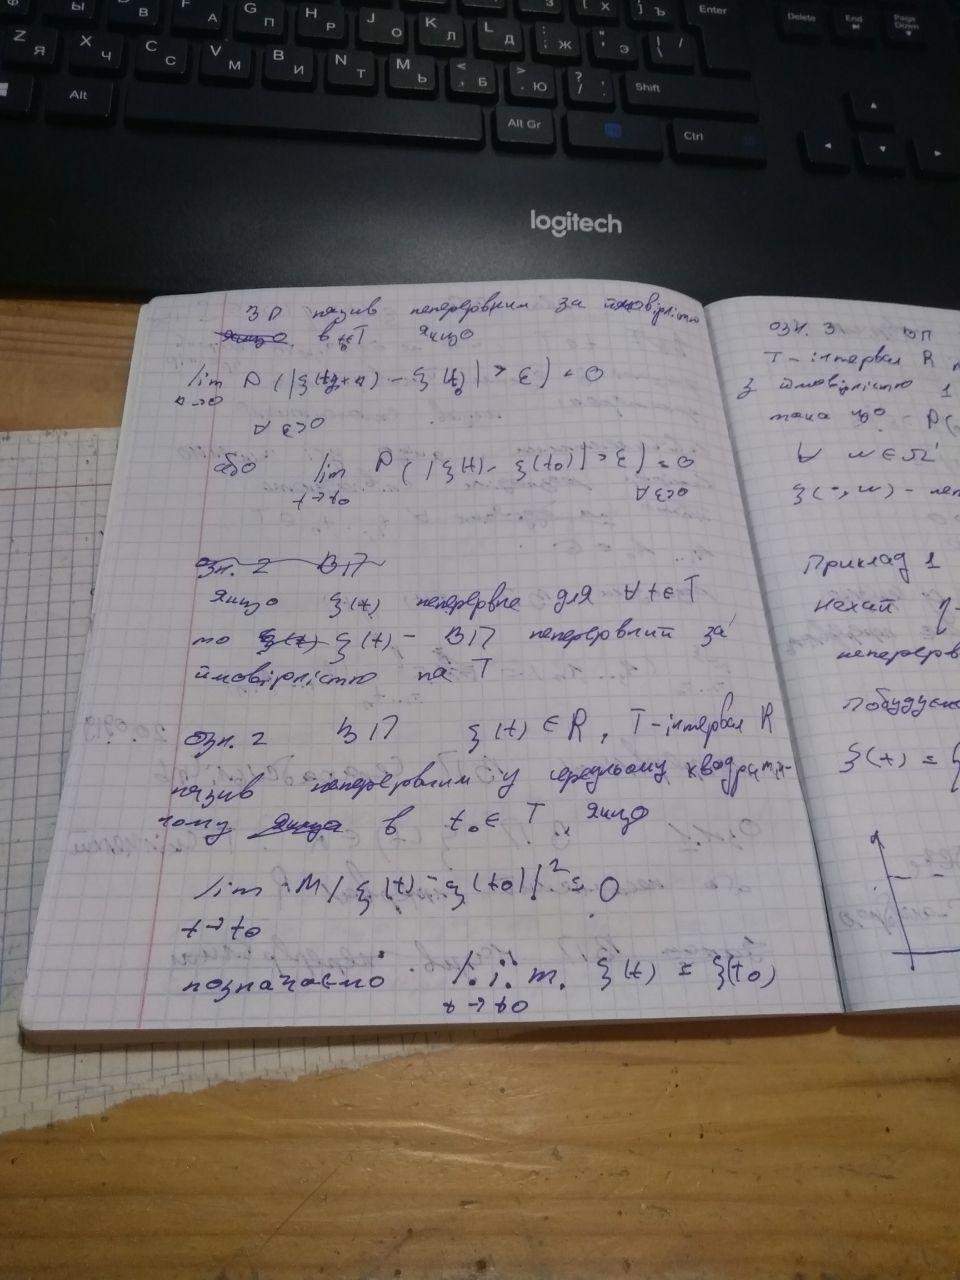 Enter
Delete
End
Page Down
Z Я
X Ч
C С
V М
B И
N Т
M Ь
< , Б
> . Ю
? / .
Shift
Alt
Alt Gr
Ctrl
logitech
ВП назив неперервним за ймовірністю
в t₀∈T якщо
lim P(|ξ(t₀+h) - ξ(t₀)| > ε) = 0
h→0
∀ ε>0
або lim P(|ξ(t) - ξ(t₀)| > ε) = 0
t→t₀ ∀ ε>0
Озн. 2 ВП
якщо ξ(t) неперервне для ∀ t∈T
то ξ(t) - ВП неперервний за
ймовірністю на T
Озн. 2 ВП ξ(t) ∈ R, T - інтервал R
назив неперервним у середньому квадратич-
ному в t₀ ∈ T якщо
lim M|ξ(t) - ξ(t₀)|² = 0
t→t₀
позначаємо l.i.m. ξ(t) = ξ(t₀)
t→t₀
Озн. 3 ВП
T - інтервал R
з ймовірністю 1
така що P(
∀ w∈Ω'
ξ(·, w) -
Приклад 1
Нехай η -
неперерв
Побудуємо
ξ(t) = {